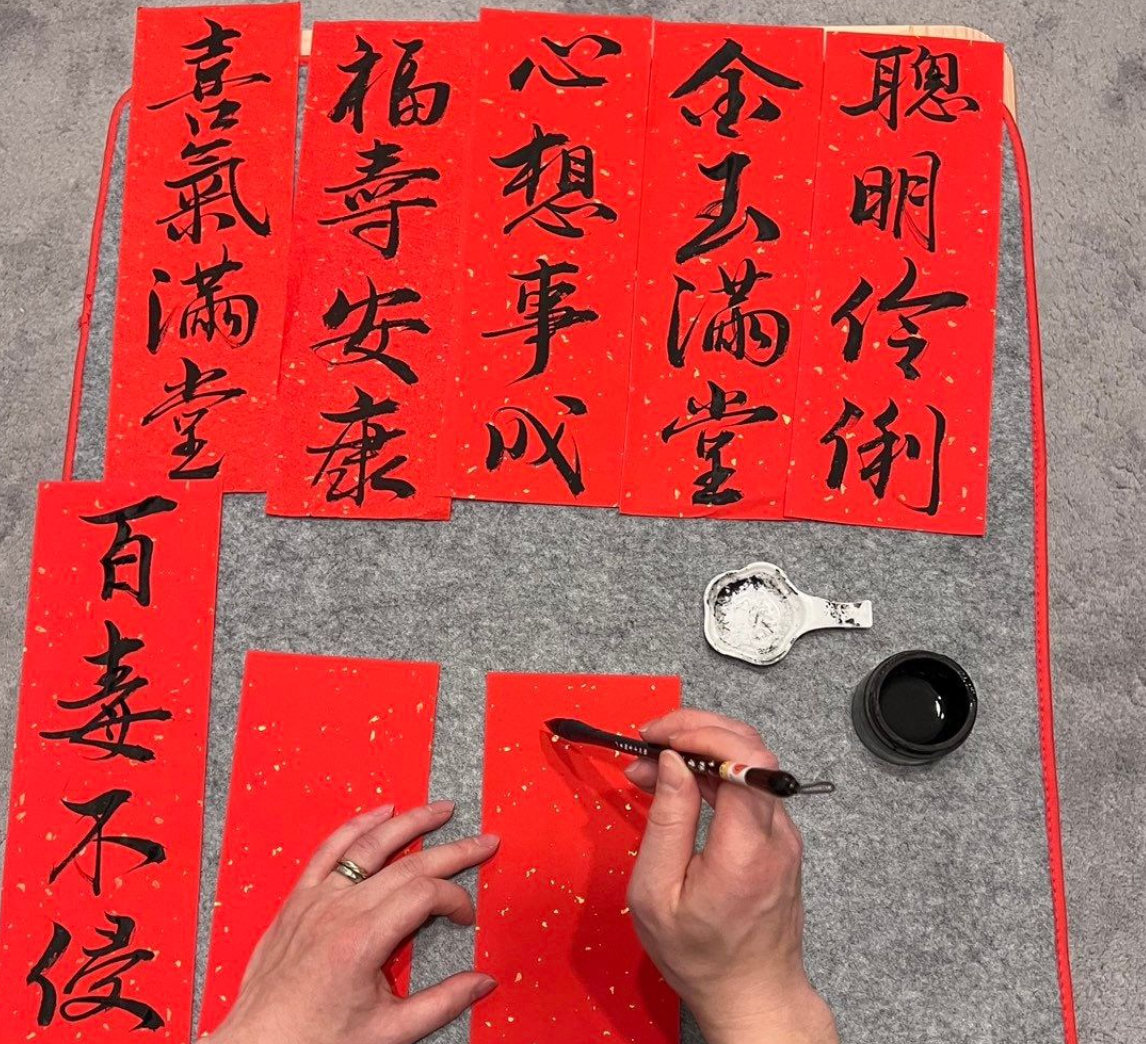 聰明伶俐
金玉滿堂
心想事成
福壽安康
喜氣滿堂
百毒不侵